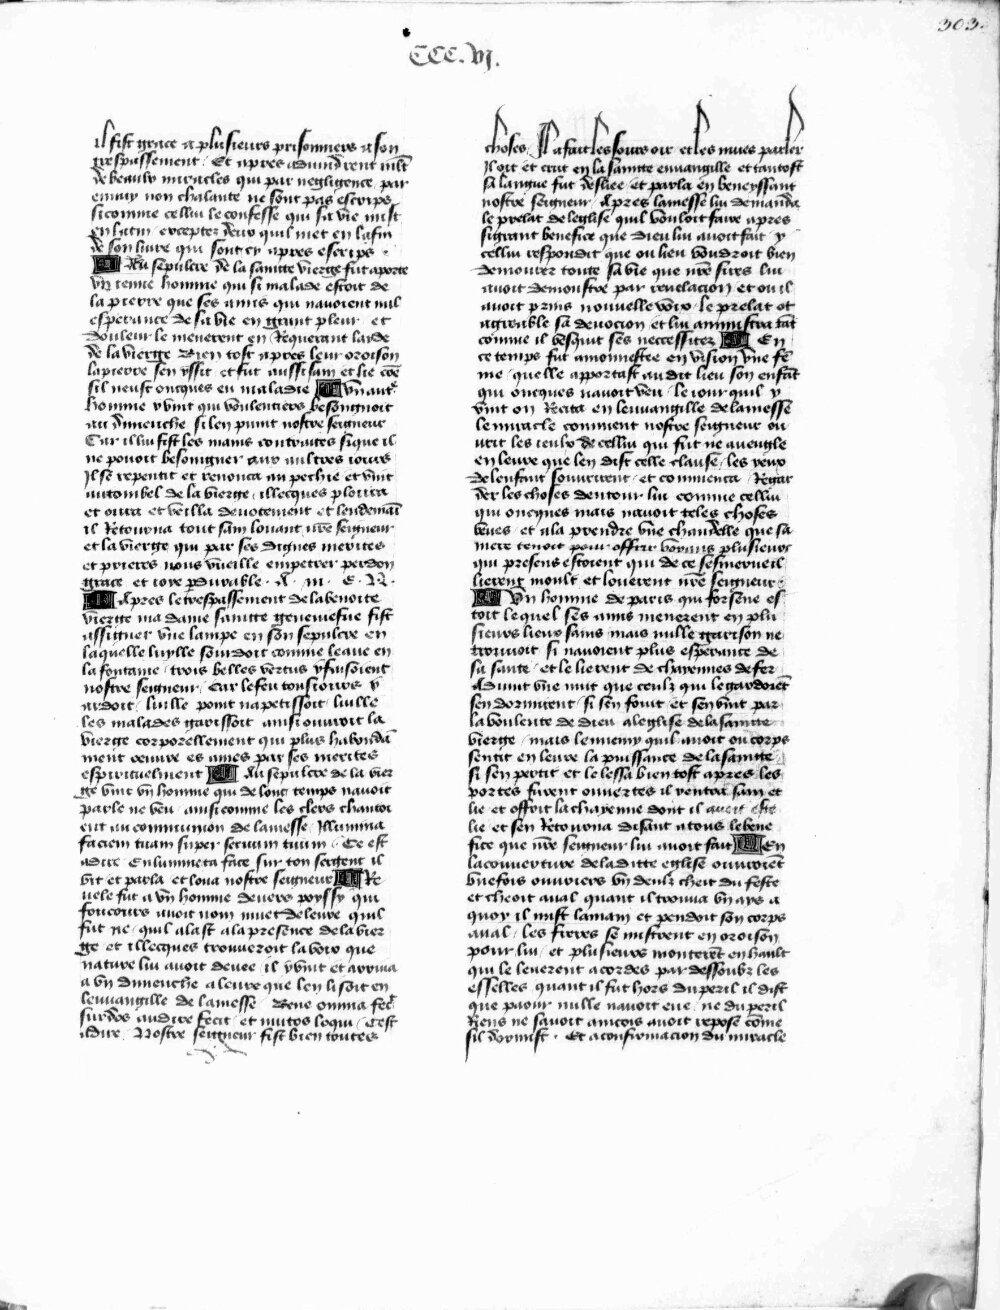 303.
CCC.VI.
il fist grace a plusieurs prisonniers a son
trespassement. Et apres advindrent mlt
de beaulx miracles qui par negligence par
ennuy non chalante ne sont pas escrips
si comme cellui le confesse qui sa vie mist
en latin excepter deux quil met en la fin
de son livre qui sont cy apres escrips.
Au sepulcre de la saincte vierge fut aporte
vn ieune homme qui si malade estoit de
la pierre que ses amis qui navoient nul
esperance de sa vie en grant pleur et
douleur le menerent en Requerant laide
de la vierge Bien tost apres leur oroison
la pierre sen yssit et fut aussi sain et lie coe
sil neust oncques eu maladie Vn autr
homme y vint qui voulentiers besongnoit
au dimenche si len punit nostre seigneur
Car il lui fist les mains contraites si que il
ne povoit besoingner aux aultres iours
Il se repentit et renonca au pechie et vint
au tombel de la vierge. illecques ploura
et oura et veilla devotement et lendemai
il Retourna tout sain louant nre seigneur
et la vierge qui par ses dignes merites
et prieres nous vueille empetrer pardon
grace et ioye pdurable. A. m. E. N.
Apres le trespassement de la benoite
vierge ma dame saincte geneviefue fist
assigner vne lampe en son sepulcre en
laquelle luylle sourdoit comme leaue en
la fontaine. trois belles vertus y faisoient
nostre seigneur. Car le feu tousiours y
ardoit. luille point napetissoit. luille
les malades garissoit ainsi ouvroit la
vierge corporellement qui plus habondam
ment oeuvre es ames par ses merites
espirituelment Au sepulcre de la vier
ge vint vn homme qui de long temps navoit
parle ne veu. ainsi comme les clers chantoi
ent au communion de la messe. Illumina
faciem tuam super servum tuum. Ce est
a dire Enlumine ta face sur ton sergent il
vit et parla et loua nostre seigneur Re
vele fut a vn homme devers poyssy qui
foucours avoit nom muet de leure quil
fut ne. quil alast a la presence de la vier
ge et illecques trouveroit la voix que
nature lui avoit devee. il y vint et arriva
a vn dimenche a leure que len lisoit en
leuvangille de la messe. Bene omnia fec
surdos audire fecit et mutos loqui. Cest
a dire. Nostre seigneur fist bien toutes
choses. Il a fait les sours oir et les mues parler
Il oit et crut en la saincte euvangille et tantost
sa langue fut desliee et parla en beneyssant
nostre seigneur. Apres la messe lui demanda
le prelat de leglise quil vouloit faire apres
si grant benefice que dieu lui avoit fait y
cellui respondit que ou lieu voudroit bien
demourer toute sa vie que nre sires lui
avoit demonstre par revelacion et ou il
avoit prins nouvelle voix. le prelat ot
agreable sa devocion et lui amnistra tat
comme il vesquit ses necessitez En
ce temps fut amonnestee en vision vne fe
me. quelle apportast au dit lieu son enfat
qui oncques navoit veu. le iour quil y
vint on Recita en leuvangille de la messe
le miracle comment nostre seigneur ou
vrit les ieulx de cellui qui fut ne aveugle
en leure que len dist celle clause. les yeux
de lenfant souvrirent. et commenca Regar
der les choses dentour lui comme cellui
qui oncques mais navoit teles choses
veues. et ala prendre vne chandelle que sa
mere tenoit pour offrir voyans plusieurs
qui presens estoient qui de ce sesmerveil
lierent moult et louerent nre seigneur.
Vn homme de paris qui forsene es
toit lequel ses amis menerent en plu
sieurs lieux sains mais nulle garison ne
trouvoit si navoient plus esperance de
sa sante. et le lierent de chayennes de fer
Advint vne nuit que ceulx qui le gardoient
sen dormirent. si sen fouit et sen vint par
la voulente de dieu a leglise de la saincte
vierge. mais lennemy quil avoit ou corps
sentit en leure la puissance de la saincte.
si sen partit et le lessa bien tost apres les
portes furent ouvertes il rentra sain et
lie et offrit la chayenne dont il avoit este
lie et sen Retourna disant a tous le bene
fice que nre seigneur lui avoit fait En
la couverture de la ditte eglise ouvroient
vnefois ouvriers vn deulx cheit du feste
et cheoit aval quant il trouva vn ays a
quoy il mist la main et pendoit son corps
aval. les freres se mistrent en oroison
pour lui. et plusieurs monterent en hault
qui le leverent a cordes par dessoubz les
esselles quant il fut hors du peril il dist
que paour nulle navoit eue. ne du peril
Riens ne savoit aincois avoit repose come
sil dormist. Et a confirmacion du miracle